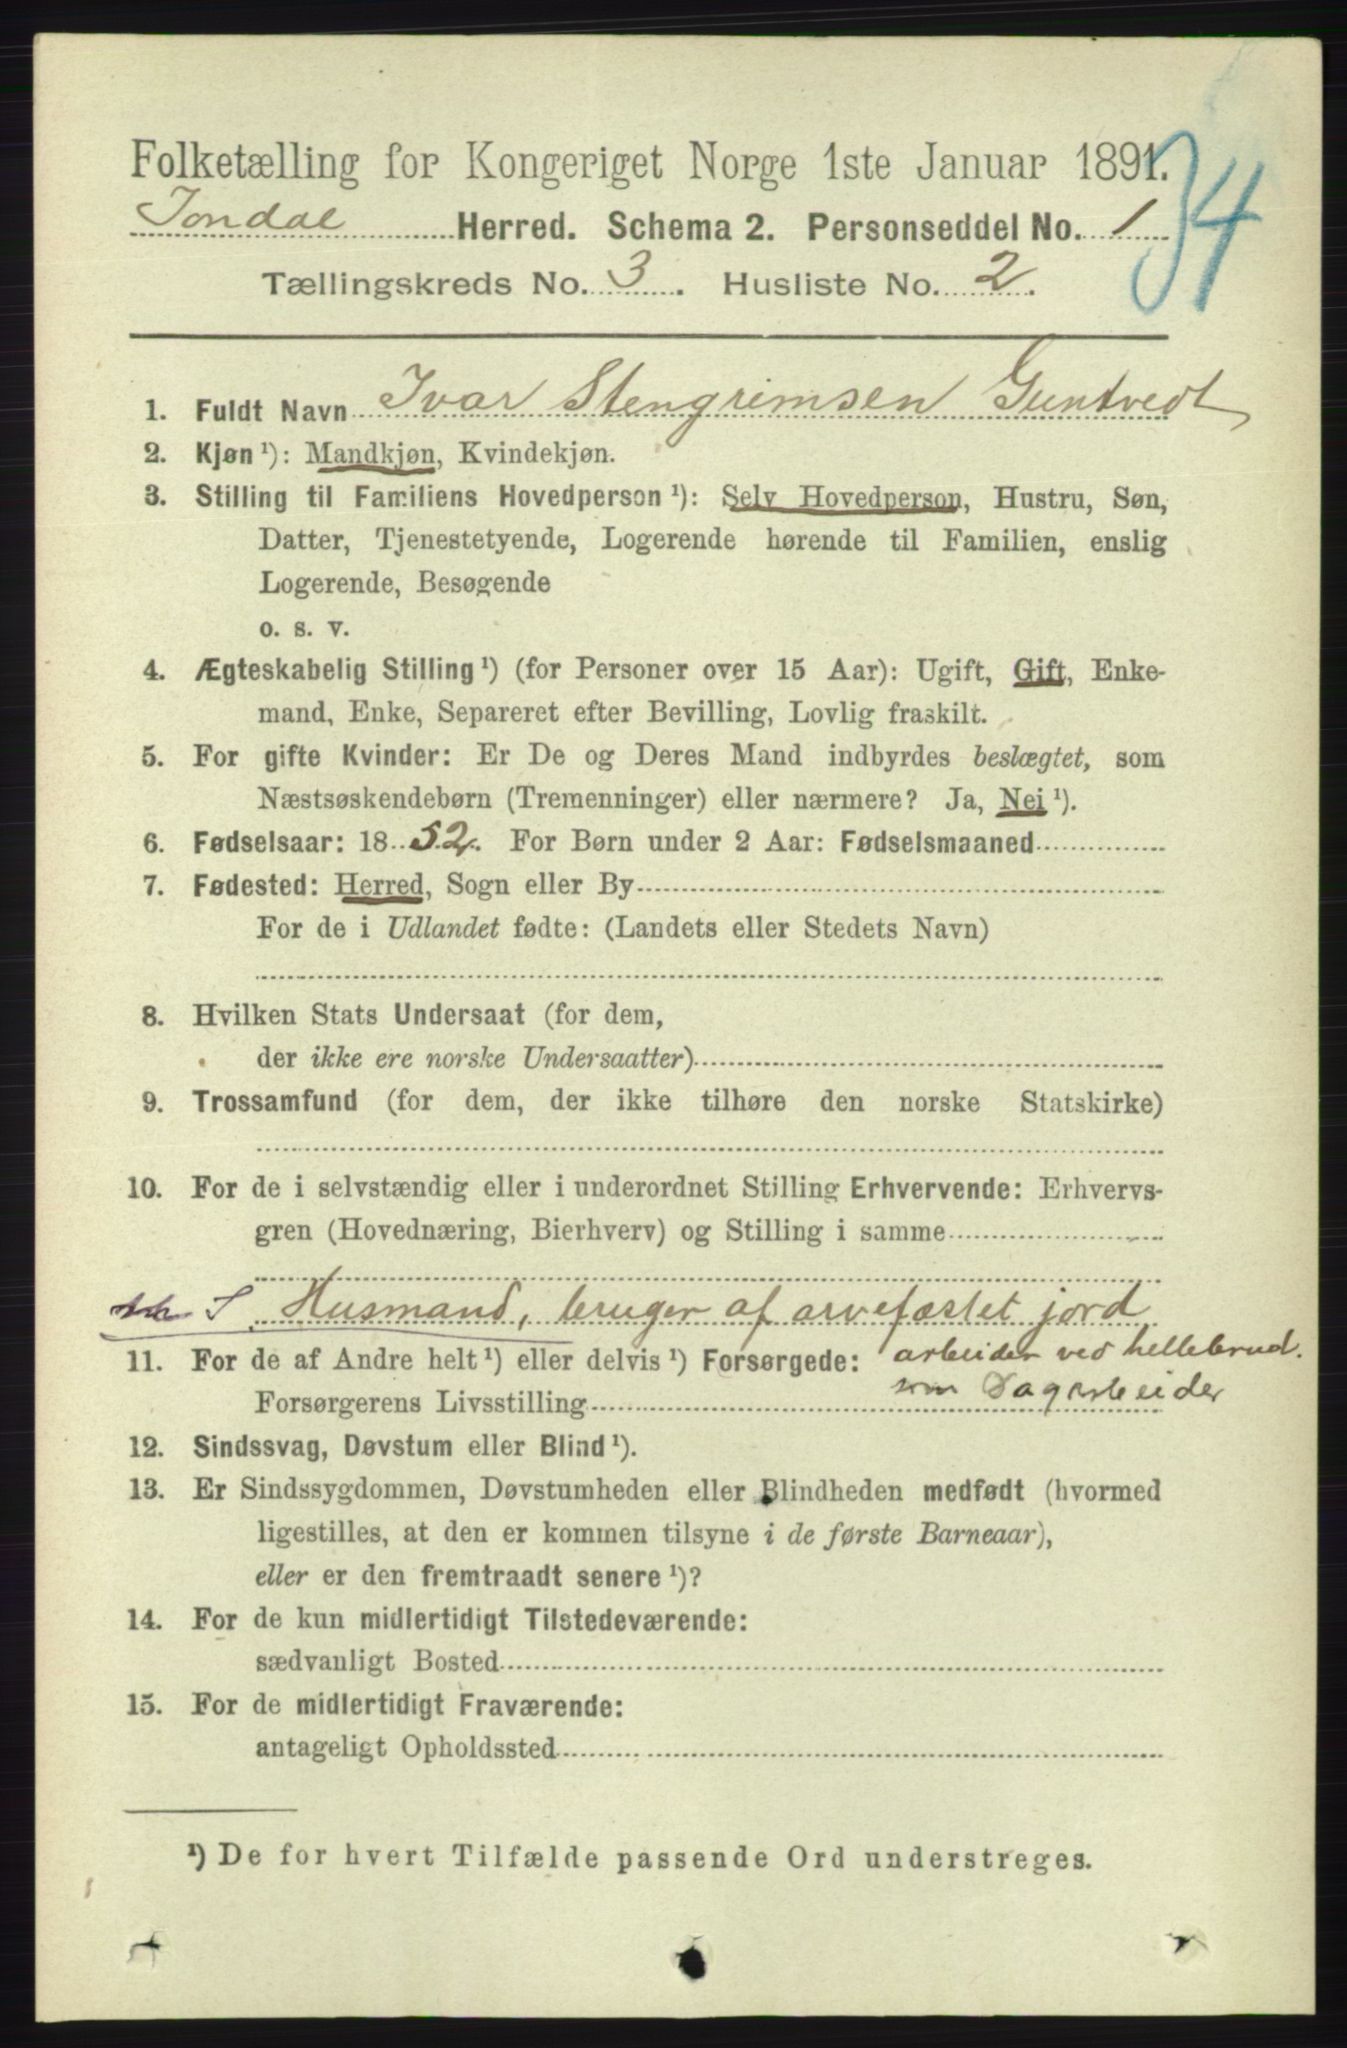 Folketælling for Kongeriget Norge 1ste Januar 1891.
34
Jondal Herred. Schema 2. Personseddel No. 1
Tællingskreds No. 3. Husliste No. 2.
1. Fuldt Navn Ivar Stengrimsen Guntvedt
2. Kjøn ¹): Mandkjøn, Kvindekjøn.
3. Stilling til Familiens Hovedperson ¹): Selv Hovedperson, Hustru, Søn,
Datter, Tjenestetyende, Logerende hørende til Familien, enslig
Logerende, Besøgende
o. s. v.
4. Ægteskabelig Stilling ¹) (for Personer over 15 Aar): Ugift, Gift, Enke-
mand, Enke, Separeret efter Bevilling, Lovlig fraskilt.
5. For gifte Kvinder: Er De og Deres Mand indbyrdes beslægtet, som
Næstsøskendebørn (Tremenninger) eller nærmere? Ja, Nei ¹).
6. Fødselsaar: 1852. For Børn under 2 Aar: Fødselsmaaned
7. Fødested: Herred, Sogn eller By
For de i Udlandet fødte: (Landets eller Stedets Navn)
8. Hvilken Stats Undersaat (for dem,
der ikke ere norske Undersaatter)
9. Trossamfund (for dem, der ikke tilhøre den norske Statskirke)
10. For de i selvstændig eller i underordnet Stilling Erhvervende: Erhvervs-
gren (Hovednæring, Bierhverv) og Stilling i samme
S Husmand, bruger af arvefæstet jord
arbeider ved hellebrud.
11. For de af Andre helt ¹) eller delvis ¹) Forsørgede:
som Dagarbeider
Forsørgerens Livsstilling
12. Sindssvag, Døvstum eller Blind ¹).
13. Er Sindssygdommen, Døvstumheden eller Blindheden medfødt (hvormed
ligestilles, at den er kommen tilsyne i de første Barneaar),
eller er den fremtraadt senere ¹)?
14. For de kun midlertidigt Tilstedeværende:
sædvanligt Bosted
15. For de midlertidigt Fraværende:
antageligt Opholdssted
¹) De for hvert Tilfælde passende Ord understreges.